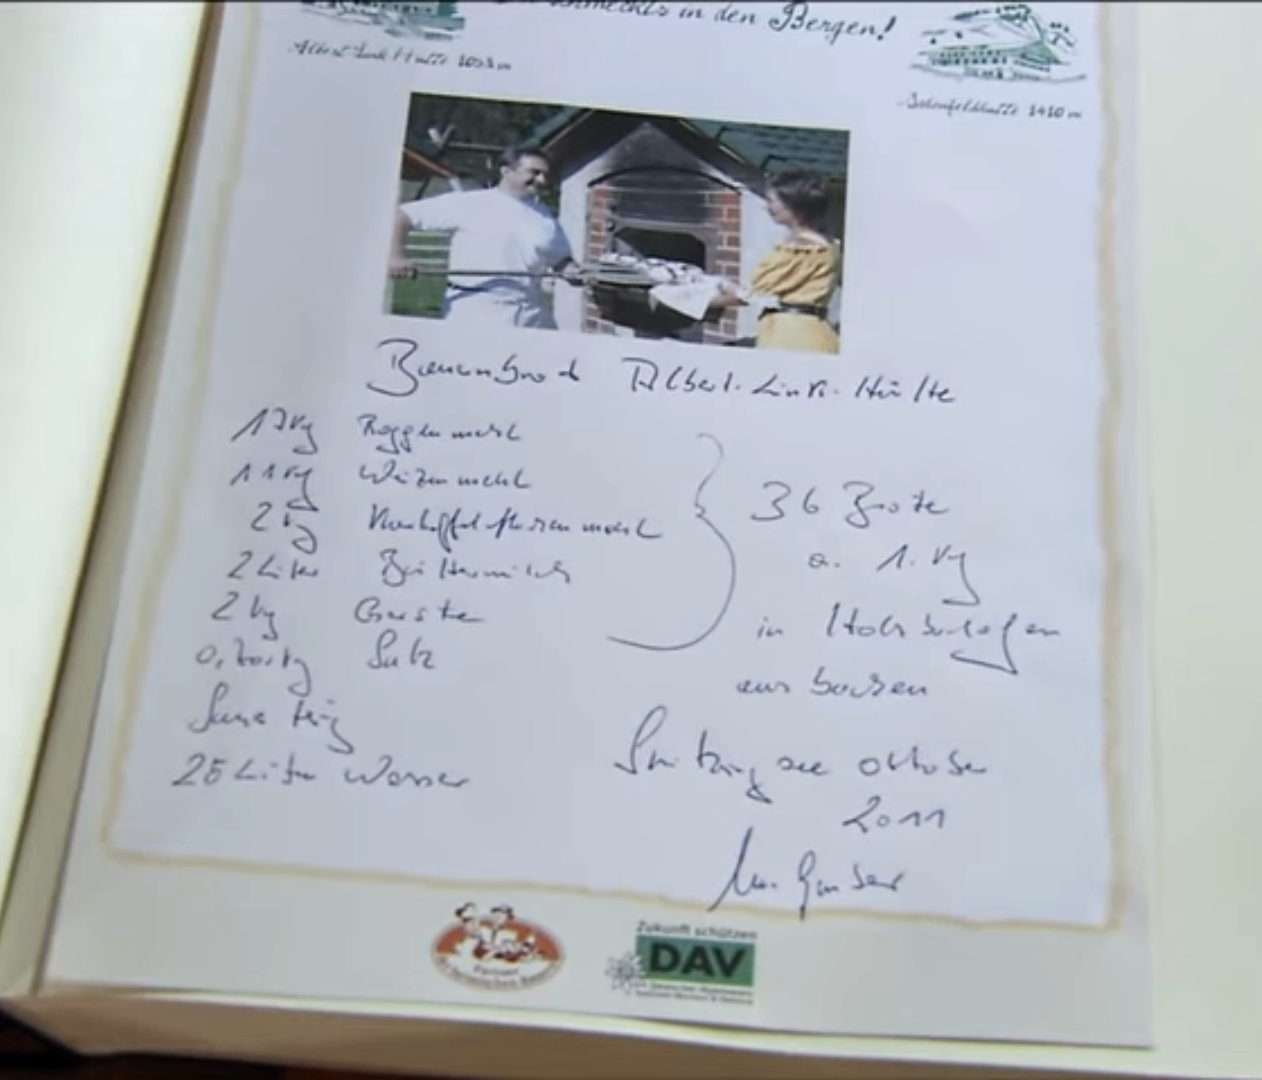 schmeckts in den Bergen!
Albert Link Hütte 1053 m
Schönfeldhütte 1410 m
Bauernbrot Albert-Link-Hütte
Roggenmehl
11 kg Weizenmehl
2 kg Kartoffelflockenmehl
2 Liter Buttermilch
2 kg Gerste
Salz
Sauerteig
25 Liter Wasser
36 Brote
a. 1. kg
in Holzbackofen
aus backen
Spitzingsee Oktober
2011
Partner
Zukunft schützen
DAV